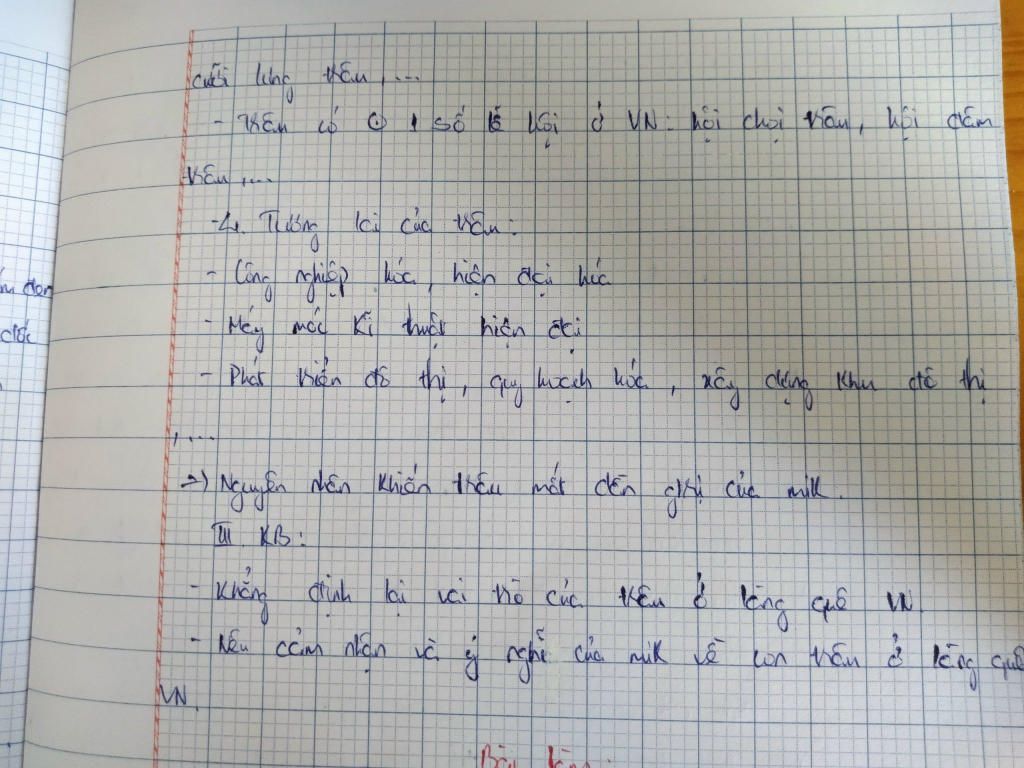 cưỡi lưng trâu, ...
- Trâu có ở 1 số lễ hội ở VN: hội chọi trâu, hội đâm
trâu, ...
4. Tương lai của trâu:
- Công nghiệp hóa, hiện đại hóa
- Máy móc kĩ thuật hiện đại
- Phát triển đô thị, quy hoạch hóa, xây dựng khu đô thị
, ...
=> Nguyên nhân khiến trâu mất dần giá trị của mik.
III. KB:
- Khẳng định lại vai trò của trâu ở làng quê VN.
- Nêu cảm nhận và ý nghĩ của mik về con trâu ở làng quê
VN.
Bài làm: